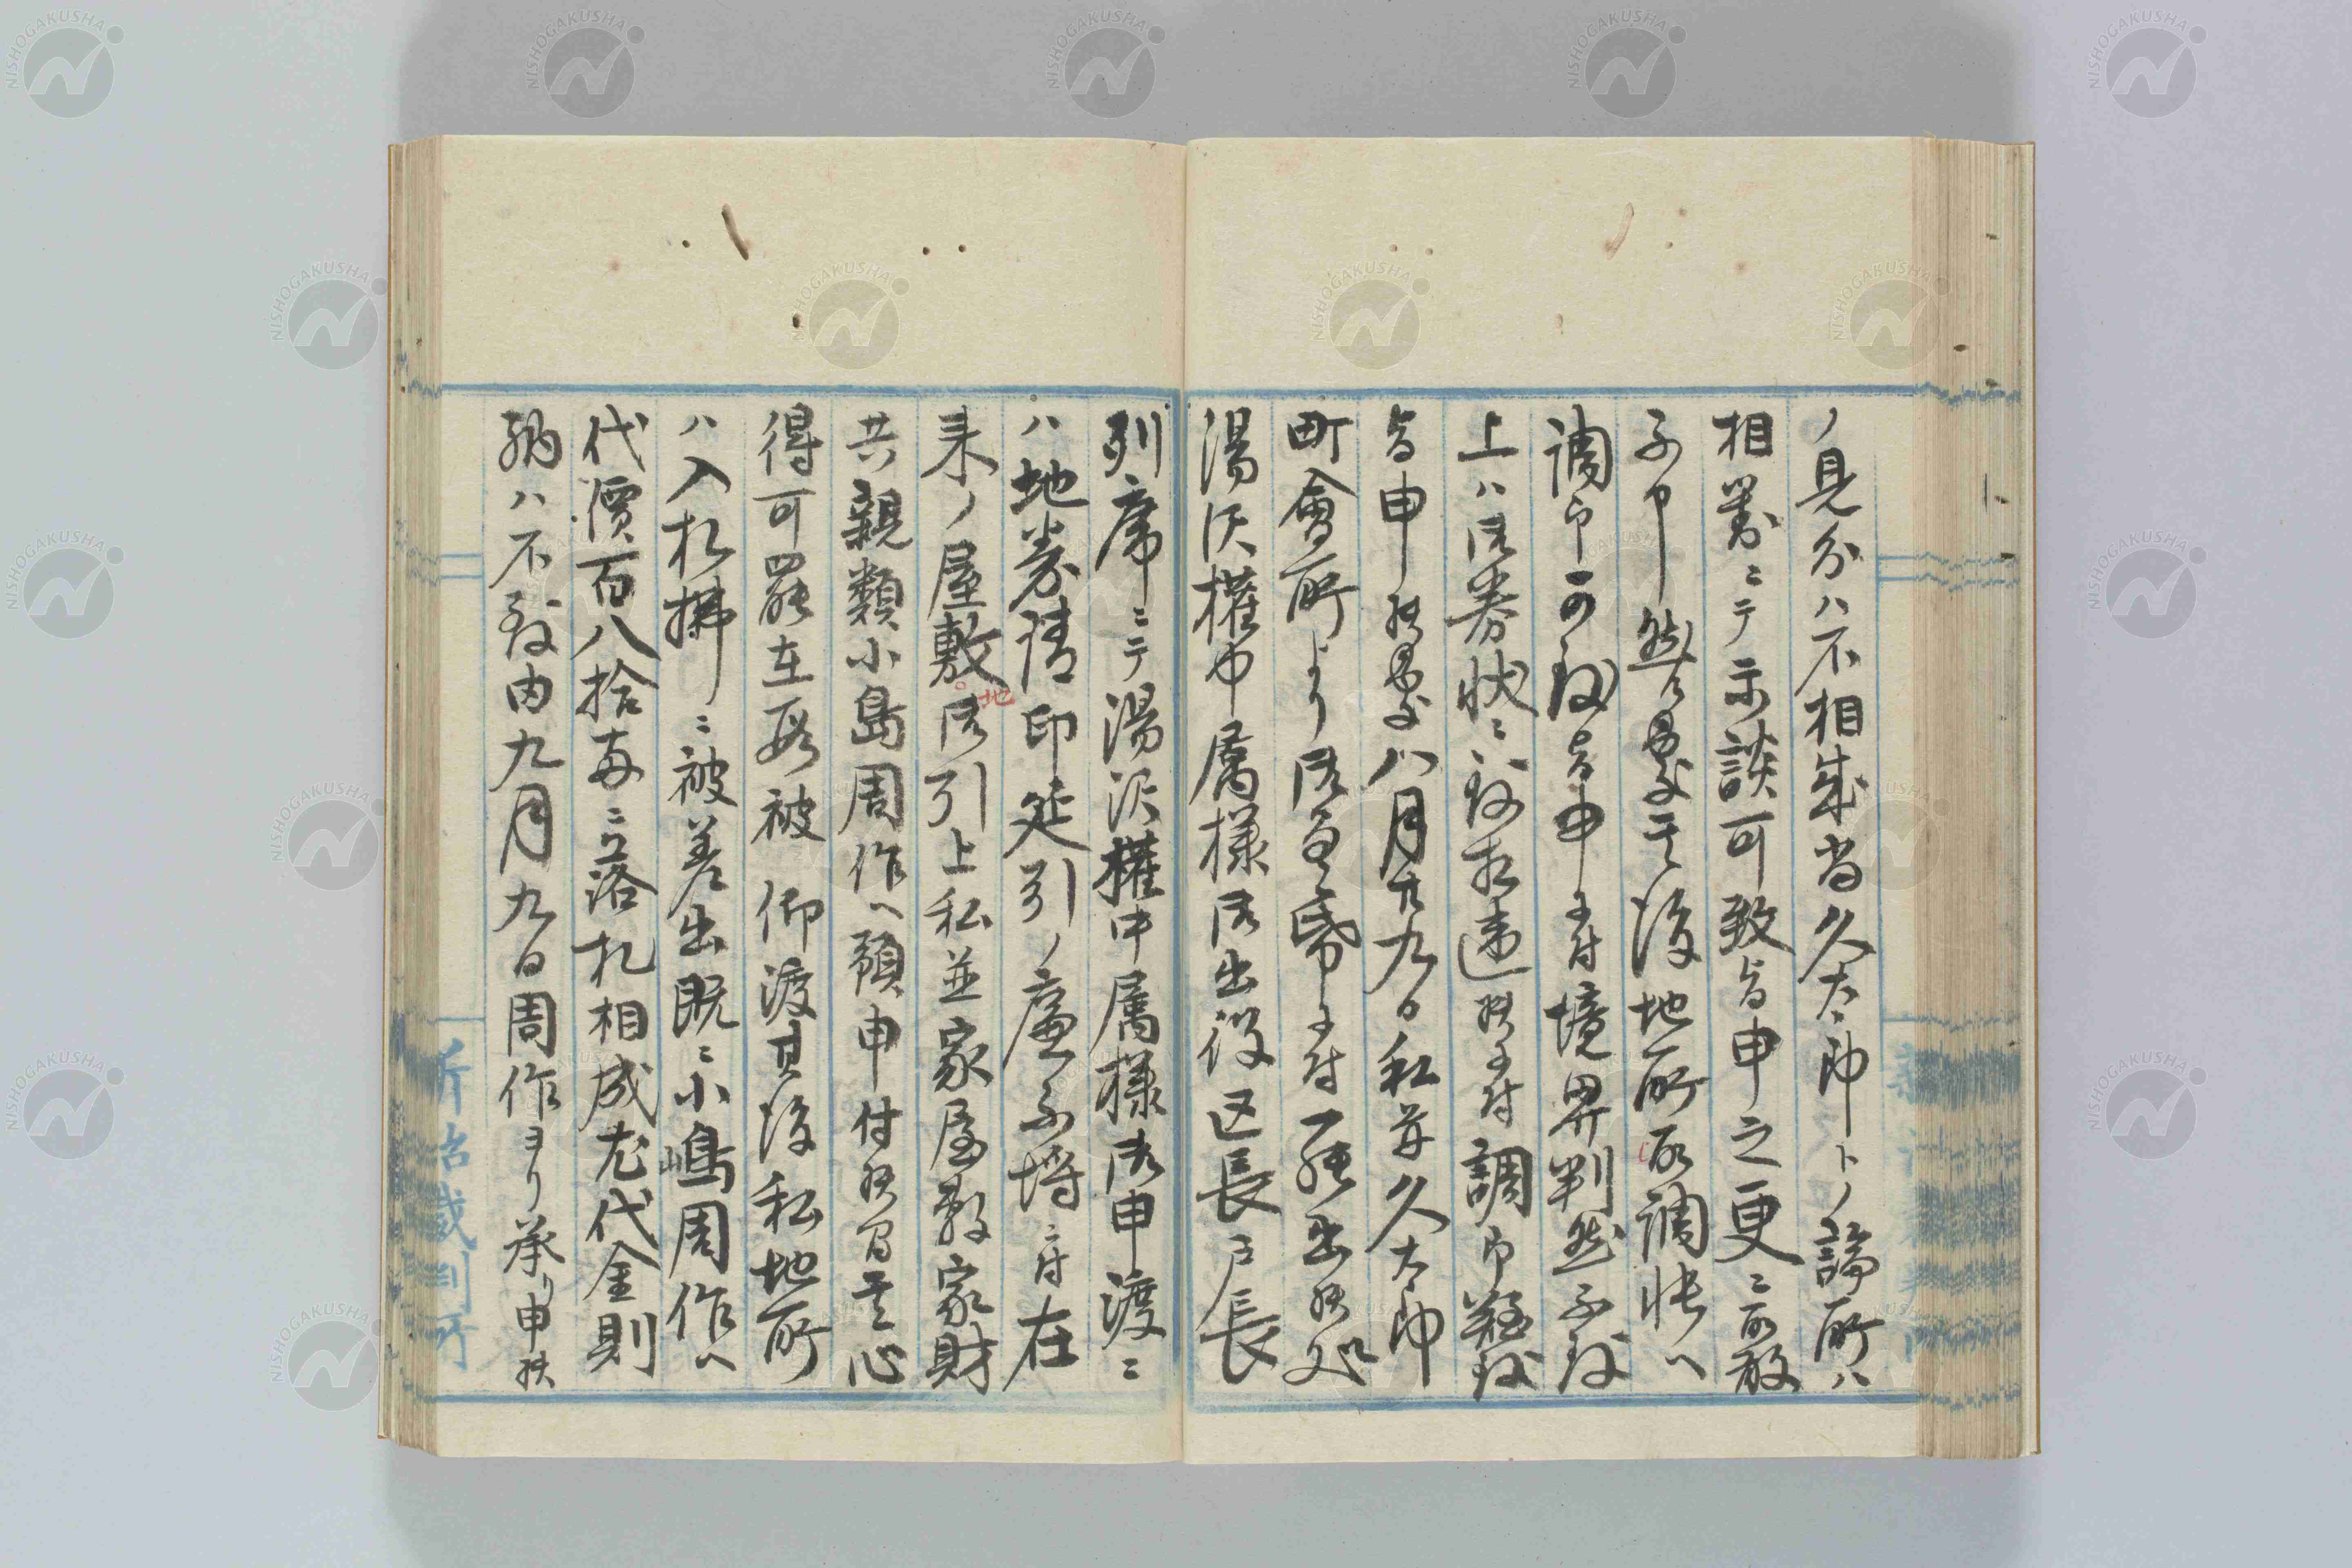 ノ見分ハ不相成当久太郎トノ論所ハ
相対ニテ示談可致旨申之更ニ取敢
不申然ル処其後地所取調帳ヘ
調印可致旨申ニ付境界判然不致
上ハ御券状ニ致相違候ニ付調印難致
旨申候処八月廿九日私並久太郎
町會所より御呼出ニ付罷出候処
湯沢権中属様御出役区長戸長
列席ニテ湯沢権中属様御申渡ニ
ハ地券請印延引ノ廉不埒ニ付在
来ノ屋敷地御引上私並家屋敷家財
共親類小島周作ヘ預申付候間其心
得可罷在段被 仰渡其後私地所
ハ入札拂ニ被差出既ニ小嶋周作ヘ
代價百八拾両ニ落札相成尤代金則
納ハ不致由九月九日周作ヨリ承リ申候
裁判所
NISHOGAKUSHA